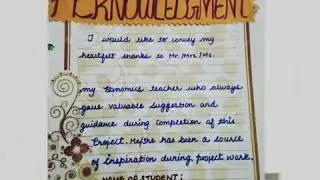 ACKNOWLEDGMENT
I would like to convey my
heartfelt thanks to Mr./Mrs./Ms.
my Economics teacher who always
gave valuable suggestion and
guidance during completion of this
Project. He/she has been a source
of inspiration during project work.
NAME OF STUDENT: